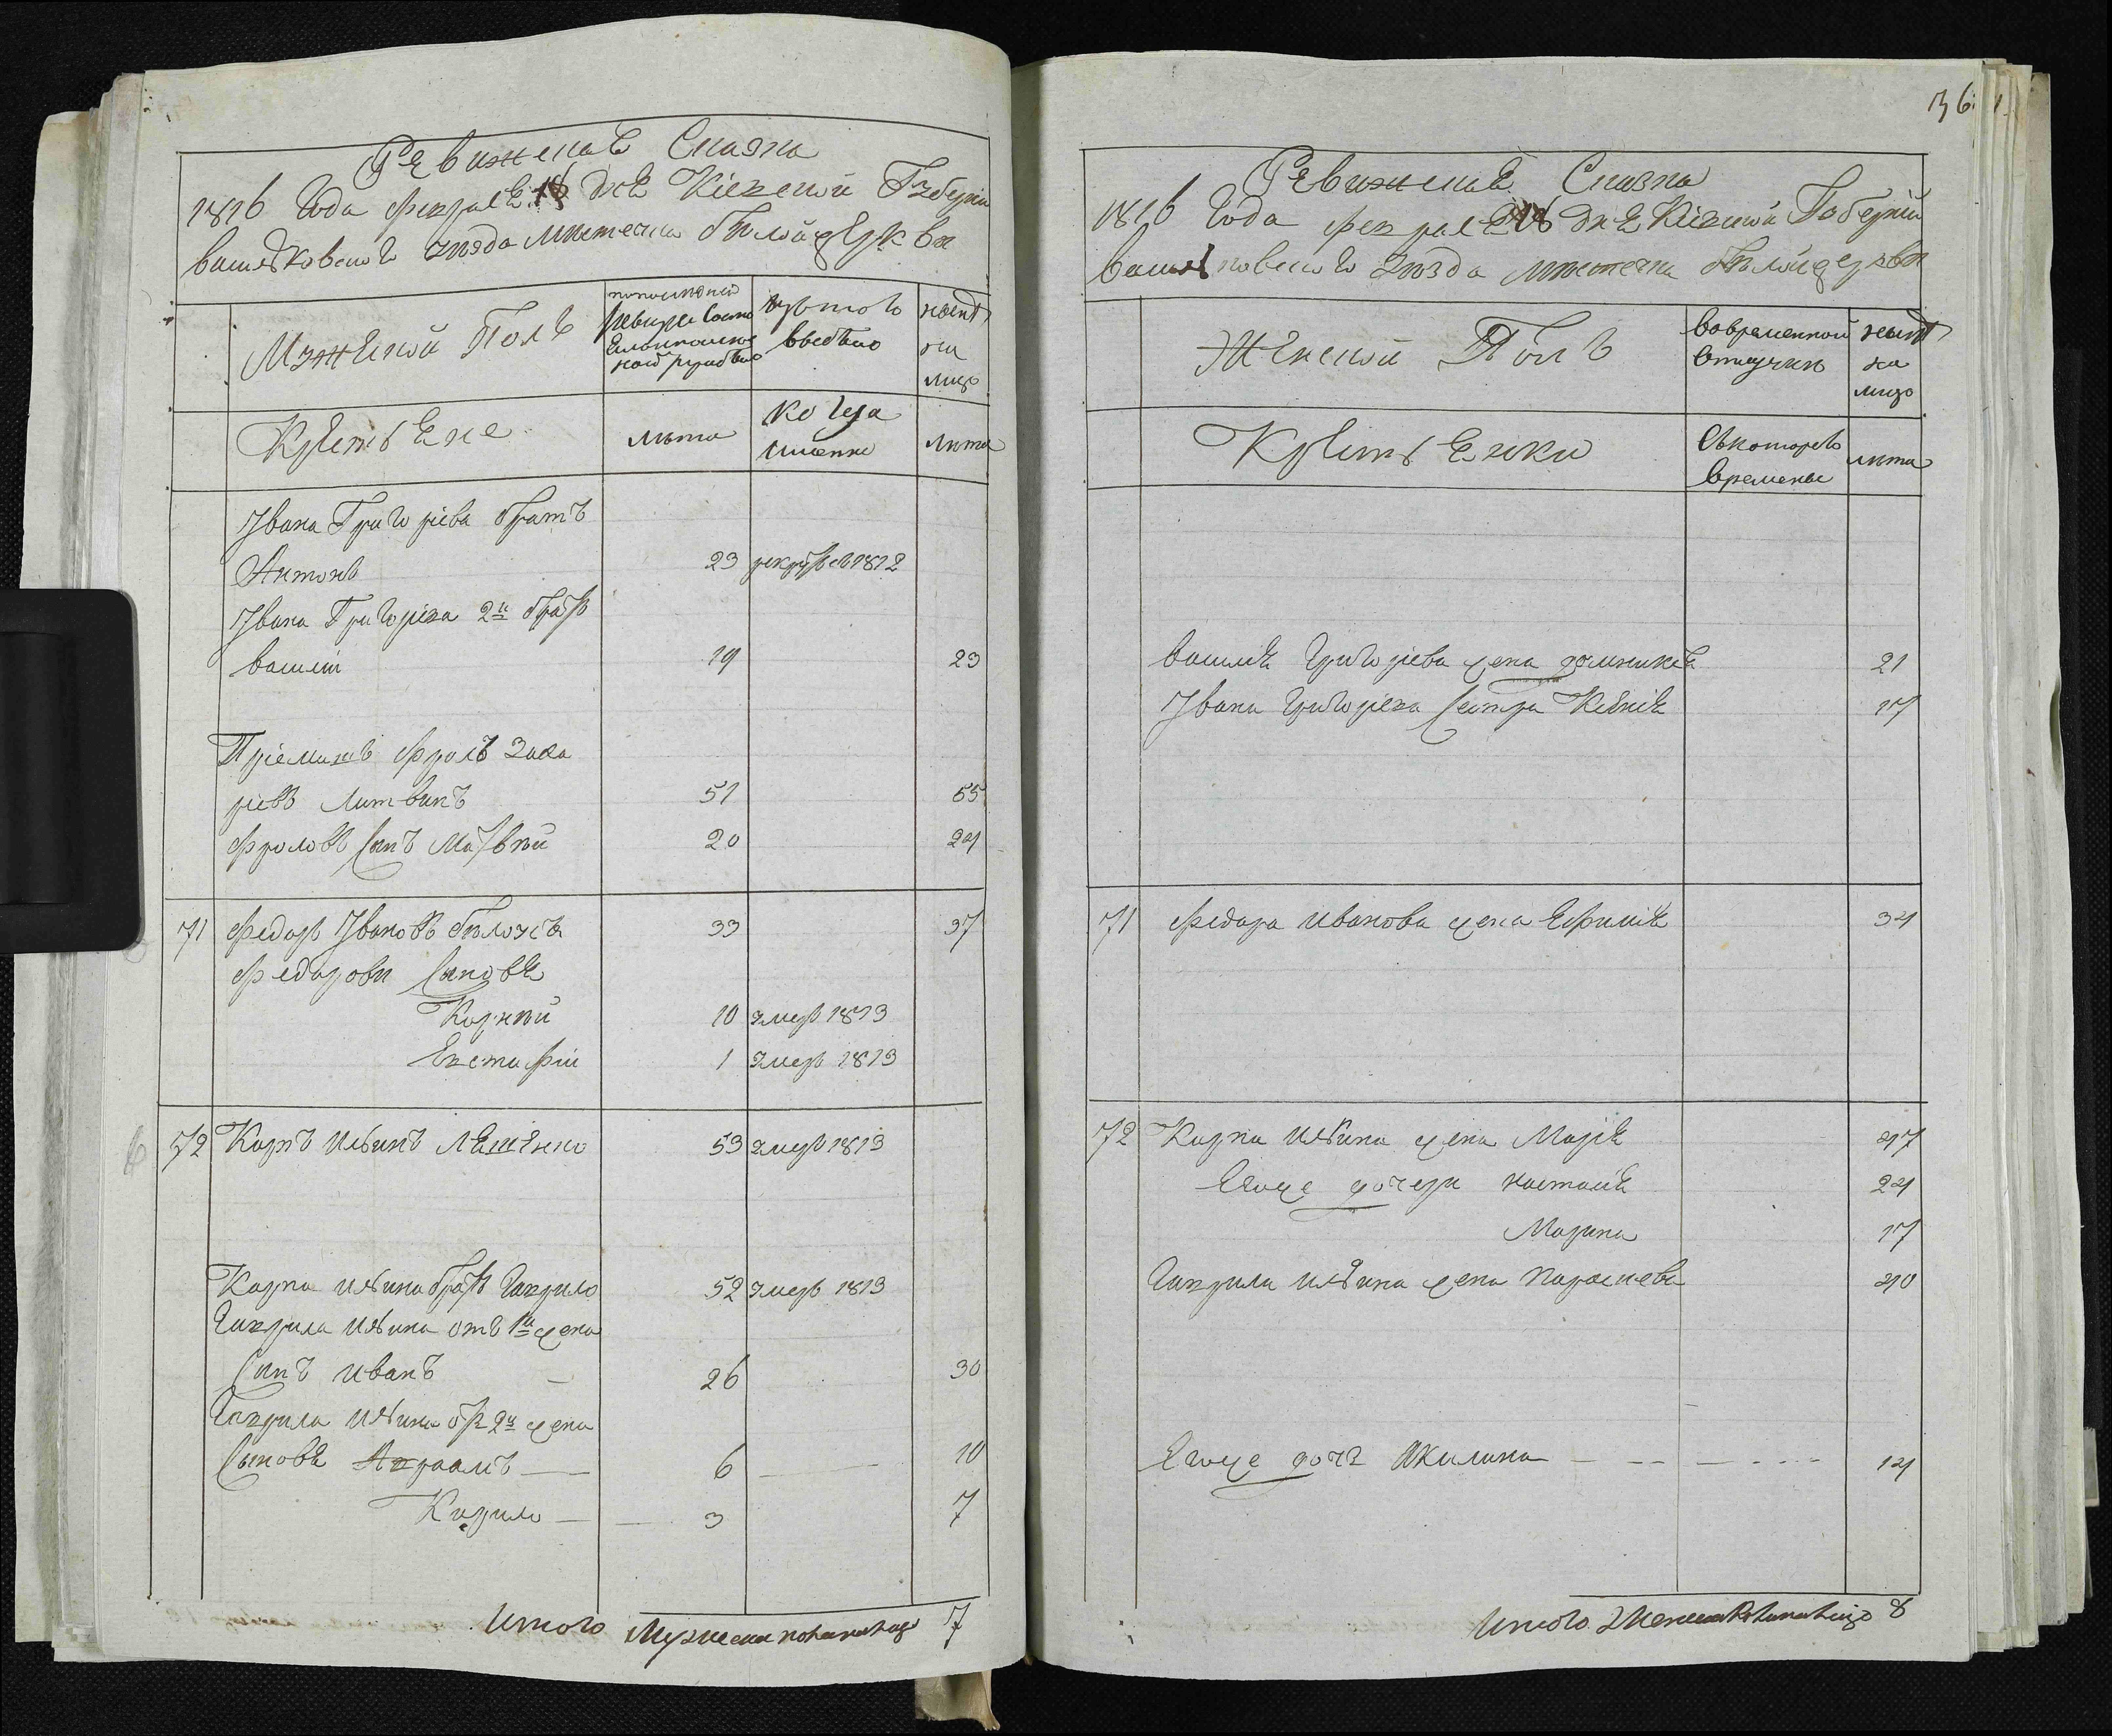 Ревижская Сказка
1816 Года февраля 18 дня Кіевской Губерніи
васильковского уезда местечка белой церкви
Мужеской Полъ
по последней ревизіи состояло
изъ того выбыло
ныне на лицо
Крестьяне
лета
когда именно
лета
Ивана Григоріева братъ
Антонъ 23 рекрутъ въ 1812
Ивана Григоріева 2й братъ
василій 19 23
Пріемишъ фролъ Заха
ріевъ Литвинъ 51 55
фроловъ сынъ Матвей 20 24
71 федоръ Ивановъ белоусъ 33 37
федоровы сыновья
Корней 10 умеръ 1813
Евстафій 1 умеръ 1813
72 Карпъ Ильинъ Лященко 53 умеръ 1813
Карпа Ильина братъ Гаврило 52 умеръ 1813
Гаврила Ильина отъ 1й жены
сынъ иванъ 26 30
Гаврила Ильина отъ 2й жены
сыновья Авраамъ 6 10
Кирило 3 7
Итого Мужеска пола налицо 7
36
Ревижская Сказка
1816 Года февраля 18 дня Кіевской Губерніи
васильковского уезда местечка белой церкви
Женской Полъ
во временной отлучке
ныне на лицо
Крестьянки
съ которого времени
лета
василія григоріева жена домникія 21
Ивана григоріева сестра Ксенія 17
71 федора иванова жена Ефимія 34
72 Карпа ильина жена Марія 47
Егоже дочери настасія 24
Марина 17
Гаврила ильина жена параскева 40
Егоже дочь Акилина 14
Итого женска пола налицо 8